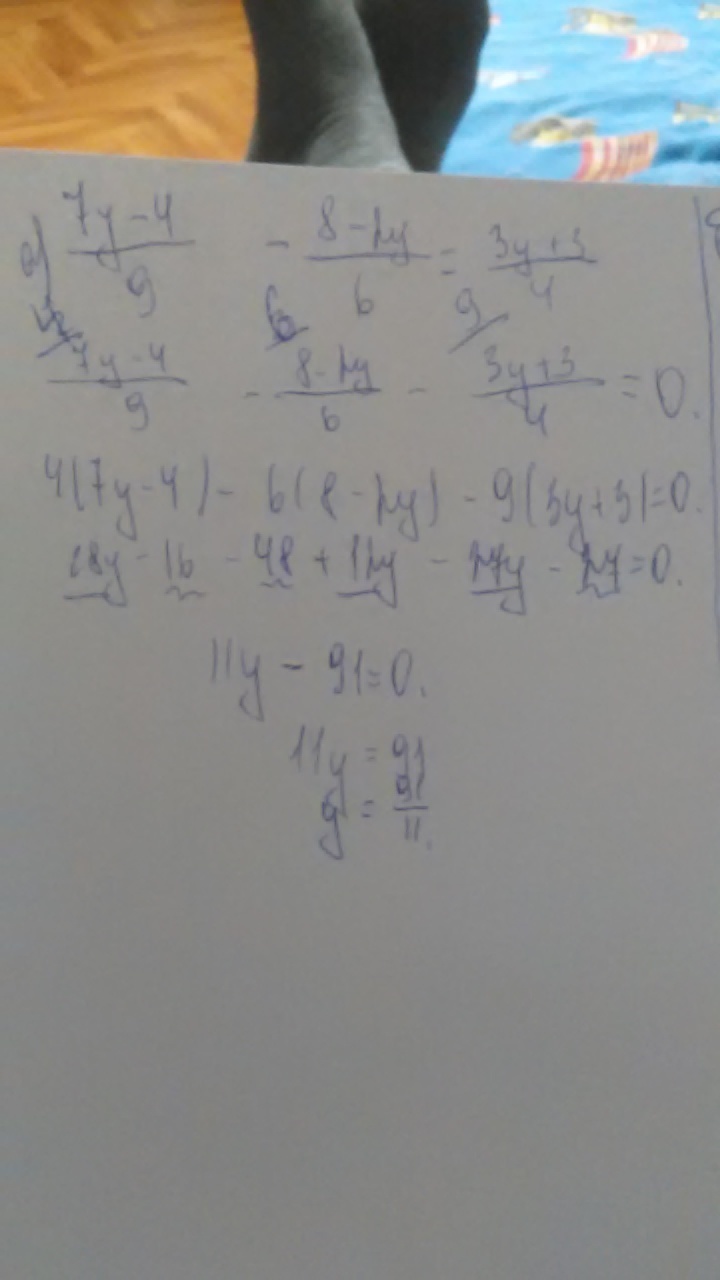 a) (7y-4)/9 - (8-2y)/6 = (3y+3)/4
4/ (7y-4)/9 - 6/ (8-2y)/6 - 9/ (3y+3)/4 = 0.
4(7y-4) - 6(8-2y) - 9(3y+3)=0.
28y - 16 - 48 + 12y - 27y - 27=0.
11y - 91=0.
11y = 91
y = 91/11.